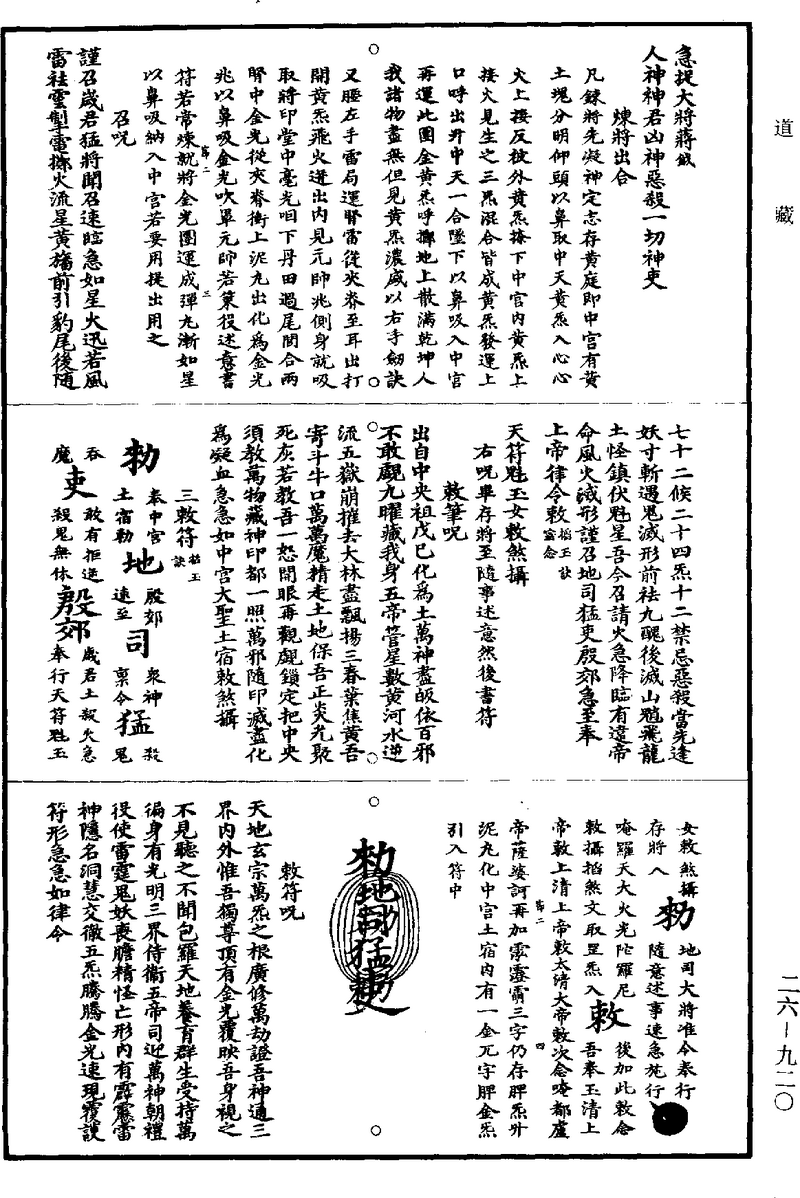 道藏
急捉大將蔣鋭
人神神君凶神惡殺一切神吏
煉將出合
凡錬將先凝神定志存黄庭即中宫有黄
土塊分明仰頭以鼻取中天黄炁入心心
火上接反彼外黄炁接下中宫内黄炁上
接火見生之三炁混合皆成黄炁發運上
口呼出升中天一合墜下以鼻吸入中宫
再運此圍金黄炁呼擲地上散滿乾坤人
我諸物盡無但見黄炁濃盛以右手劒訣
叉腰左手雷局運腎雷從夾脊至耳出打
開黄炁飛火迸出内見元帥兆側身就吸
取將印堂中毫光咽下丹田過尾閭合兩
腎中金光從夾脊衝上泥丸出化爲金光
兆以鼻吸金光吹罩元帥若策役述意書
符若常煉就將金光團運成彈丸漸如星
以鼻吸納入中宫若要用提出用之
召呪
謹召歲君猛將聞召速臨急如星火迅若風
雷袪雲掣電擲火流星黄旛前引豹尾後隨
七十二候二十四炁十二禁忌惡殺當先逢
妖寸斬遇鬼滅形前袪九醜後滅山魈飛龍
土怪鎮伏魁星吾今召請火急降臨有違帝
命風火滅形謹召地司猛吏殷郊急至奉
上帝律令敕 掐玉訣密念
天符魁玉女敕煞攝
右呪畢存將至隨事述意然後書符
敕筆呪
出自中央祖戊巳化爲土萬神盡皈依百邪
不敢覰九曜藏我身五帝管星數黄河水逆
流五嶽崩摧去大林盡飄揚三春葉焦黄吾
寄斗牛口萬萬魔精走土地保吾正炎九聚
死灰若教吾一怒開眼再觀覰鎖定把中央
須教萬物藏神印都一照萬邪隨印滅盡化
爲凝血急急如中宫大聖土宿敕煞攝
三敕符 掐玉訣
勑 奉中宫土宿勑 地 殷郊速至 司 衆神稟令 猛 殺鬼
吞魔 吏 敢有拒逆殺鬼無休 殷郊 歲君土殺火急奉行天符魁玉
女敕煞攝 勑 地司大將准令奉行
存將入 隨意述事速急施行
唵羅天大火光陀羅尼 後加此敕念
敕攝掐煞文取罡炁入 敕 吾奉玉清上
帝敕上清上帝敕太清大帝敕次念唵都盧
帝薩婆訶再加霐靐霨三字仍存脾炁升
泥丸化中宫土宿内有一金兀字脾金炁
引入符中
勑地司猛吏
敕符呪
天地玄宗萬炁之根廣修萬劫證吾神通三
界内外惟吾獨尊頂有金光覆映吾身視之
不見聽之不聞包羅天地養育群生受持萬
徧身有光明三界侍衛五帝司迎萬神朝禮
役使雷霆鬼妖喪膽精怪亡形内有霹靂雷
神隱名洞慧交徹五炁騰騰金光速現覆護
符形急急如律令
二六－九二〇